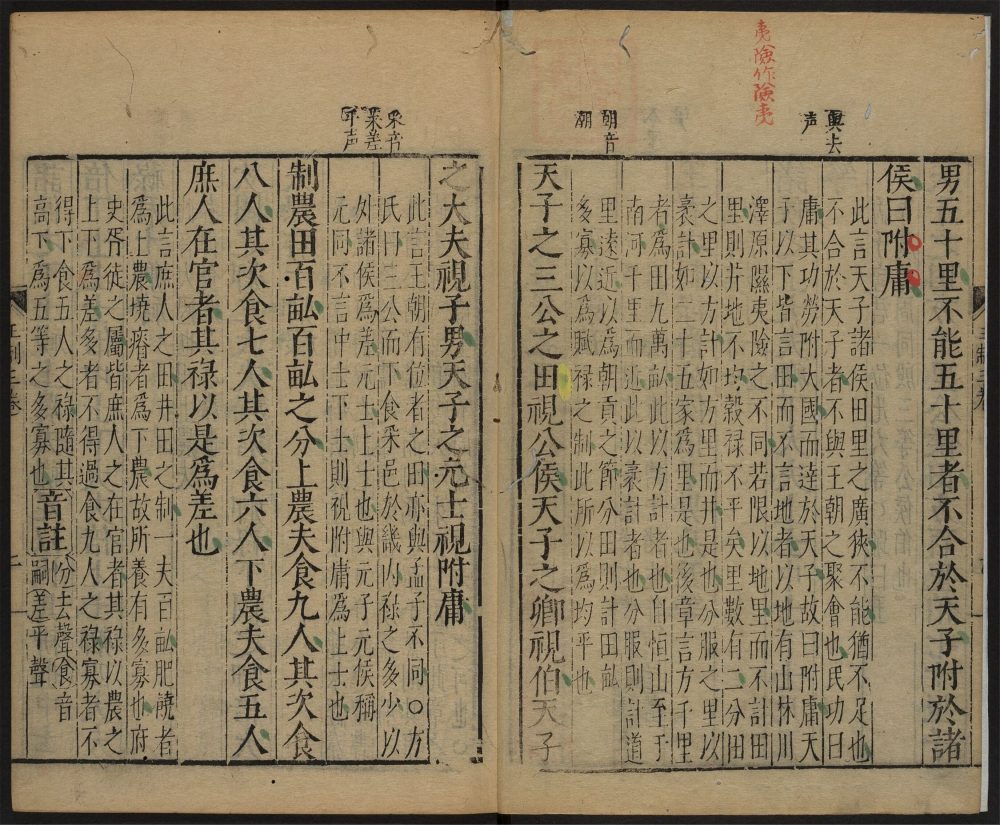 夷險作險夷
輿去
声
朝音
潮
男五十里不能五十里者不合於天子附於諸
侯曰附庸
此言天子諸侯田里之廣狹不能猶不足也
不合於天子者不與王朝之聚會也民功曰
庸其功勞附大國而達於天子故曰附庸天
子以下皆言田而不言地者以地有山林川
澤原隰夷險之不同若限以地里而不計田
里則井地不均穀禄不平矣里數有二分田
之里以方計如方里而井是也分服之里以
袤計如二十五家爲里是也後章言方千里
者爲田九萬畝此以方計者也自恒山至于
南河千里而近此以袤計者也分服則計道
里遠近以爲朝貢之節分田則計田畝
多寡以爲賦禄之制此所以爲均平也
天子之三公之田視公侯天子之卿視伯天子
采音
菜差
平声
之大夫視子男天子之元士視附庸
此言王朝有位者之田亦與孟子不同○方
氏曰三公而下食采邑於畿内禄之多少以
外諸侯爲差元士上士也與元子元侯稱
元同不言中士下士則視附庸爲上士也
制農田百畝百畝之分上農夫食九人其次食
八人其次食七人其次食六人下農夫食五人
庶人在官者其禄以是爲差也
此言庶人之田井田之制一夫百畝肥饒者
爲上農墝瘠者爲下農故所養有多寡也府
史胥徒之屬皆庶人之在官者其禄以農之
上下爲差多者不得過食九人之禄寡者不
得下食五人之禄隨其
高下爲五等之多寡也 音註 分去聲食音
嗣差平聲